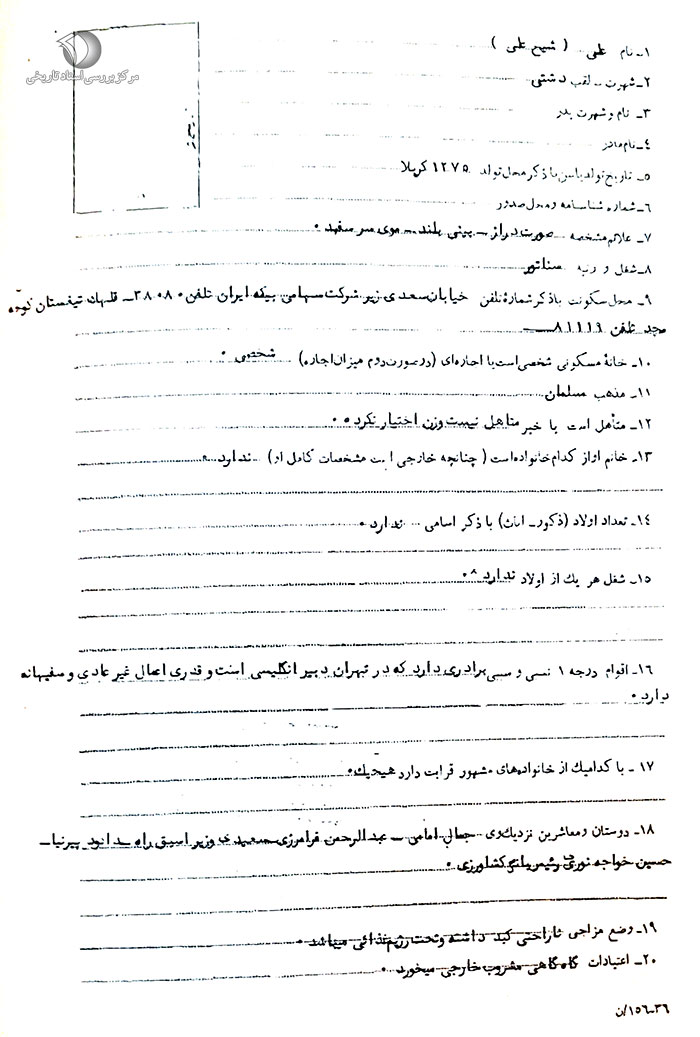 مرکز بررسی اسناد تاریخی
۱ـ نام علی ( شیخ علی )
۲ـ شهرت ـ لقب دشتی
۳ـ نام و شهرت پدر
۴ـ نام مادر
۵ـ تاریخ تولد یا سن با ذکر محل تولد ۱۲۷۵ کربلا
۶ـ شماره شناسنامه و محل صدور
۷ـ علائم مشخصه صورت دراز ـ بینی بلند ـ موی سر سفید ۰
۸ـ شغل و رتبه سناتور
۹ـ محل سکونت با ذکر شمارهٔ تلفن خیابان سعدی زیر شرکت سهامی بیمه ایران تلفن ۳۸۰۸۰ ـ قلهک تیغستان کوچه
مجد تلفن ۸۱۱۱۹
۱۰ـ خانهٔ مسکونی شخصی است یا اجاره‌ای (در صورت دوم میزان اجاره) شخصی ۰
۱۱ـ مذهب مسلمان
۱۲ـ متأهل است یا خیر متاهل نیست و زن اختیار نکرده ۰
۱۳ـ خانم او از کدام خانواده است ( چنانچه خارجی است مشخصات کامل او) ندارد ۰
۱۴ـ تعداد اولاد (ذکور ـ اناث) با ذکر اسامی ندارد ۰
۱۵ـ شغل هر یك از اولاد ندارد ۰
۱۶ـ اقوام درجه ۱ نسبی و سببی برادری دارد که در تهران دبیر انگلیسی است و قدری اعمال غیر عادی و سفیهانه
دارد ۰
۱۷ـ با کدامیك از خانواده‌های مشهور قرابت دارد هیچیك ۰
۱۸ـ دوستان و معاشرین نزدیك وی جمال امامی ـ عبدالرحمن فرامرزی ـ سعیدی وزیر اسبق راه ـ داود پیرنیا ـ
حسین خواجه نوری کشاورزی ۰
۱۹ـ وضع مزاجی ناراحتی کبد داشته و تحت رژیم غذائی میباشد ۰
۲۰ـ اعتیادات گاه گاهی مشروب خارجی میخورد ۰
۳۶ـ۱۵۶/ن